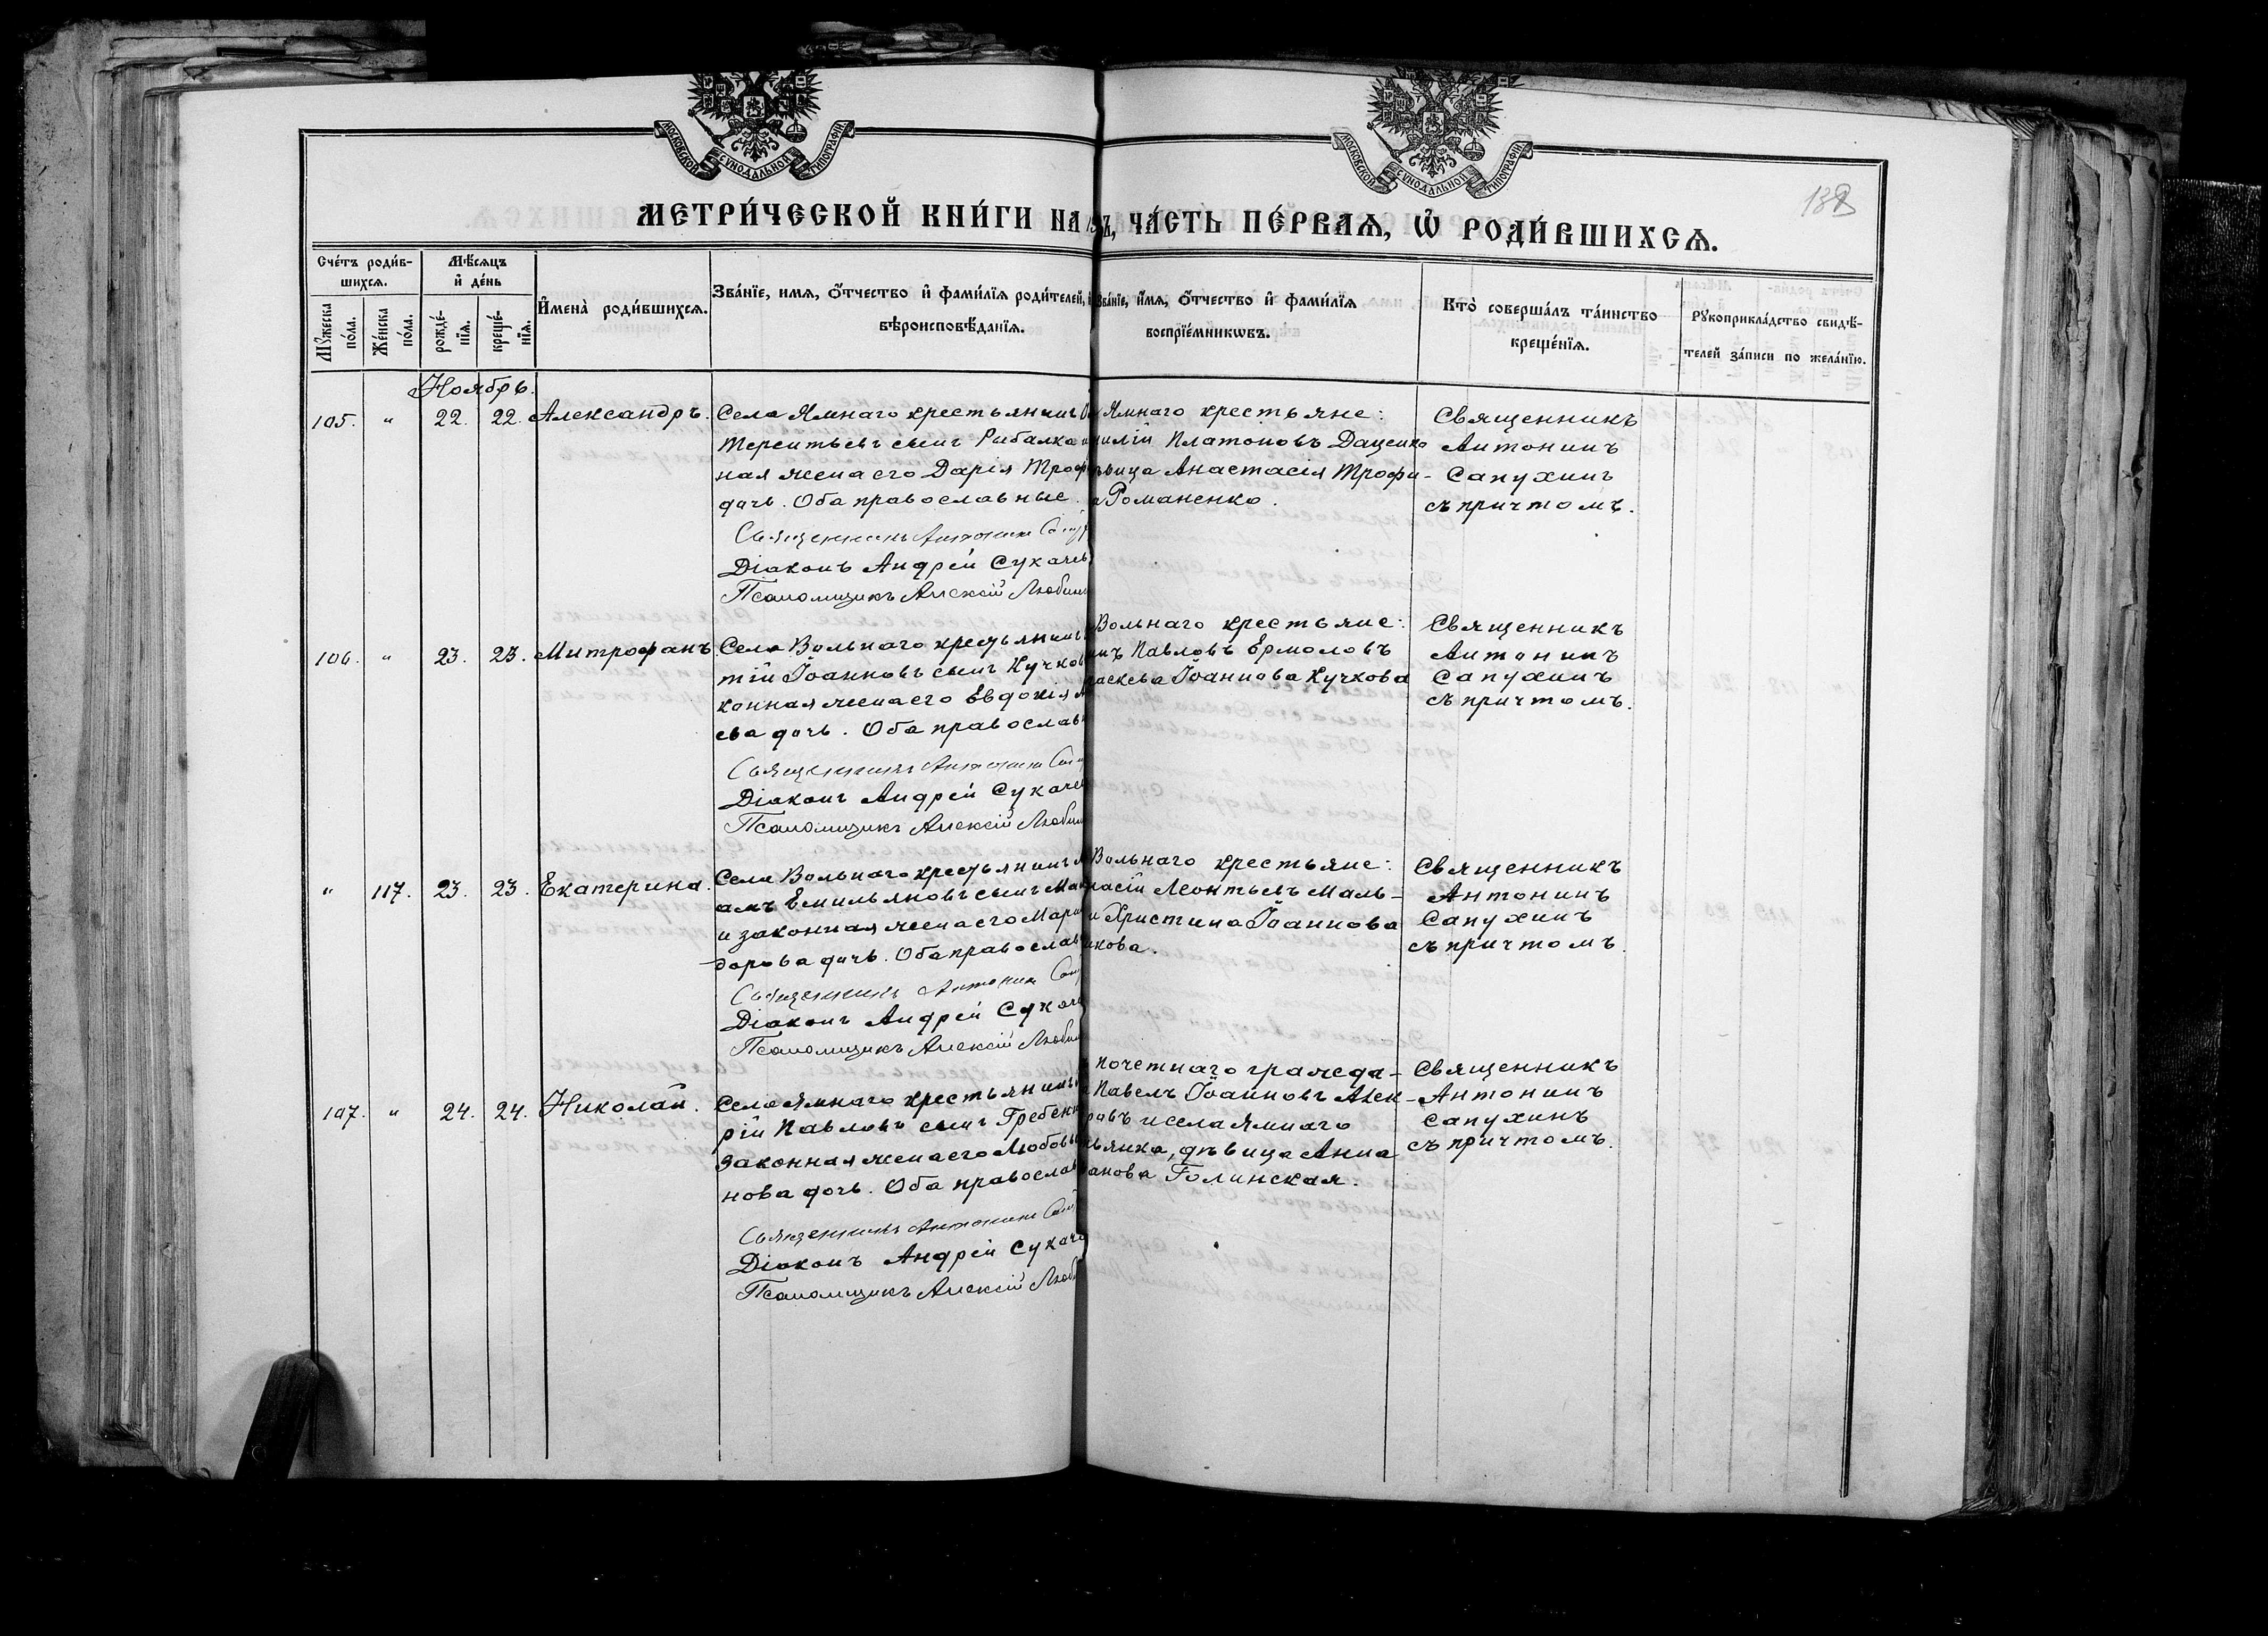 МОСКОВСКОЙ СѴНОДАЛЬНОЙ ТИПОГРАФІИ
МОСКОВСКОЙ СѴНОДАЛЬНОЙ ТИПОГРАФІИ
МЕТРИ́ЧЕСКОЙ КНИ́ГИ НА
ЧА́СТЬ ПЕ́РВАѦ, Ѽ РОДИ́ВШИХСѦ.
Сче́тъ роди́в-
шихсѧ.
Мꙋ́жеска по́ла.
Же́нска по́ла.
Мѣ́сѧцъ и҆ де́нь
рожде́-нїѧ.
креще́-нїѧ.
И҆мена̀ роди́вшихсѧ.
Зва́нїе, имѧ, ѻ҆́тчество и҆ фами́лїѧ роди́телей,
вѣроисповѣ́данїѧ.
Зва́нїе, и҆́мѧ, ѻ҆́тчество и҆ фами́лїѧ
воспрїе́мникѡвъ.
Кто̀ соверша́лъ та́инство
креще́нїѧ.
Рꙋкоприкла́дство свидѣ́-
телей за́писи по жела́нїю.
Ноябрь.
105. " 22. 22. Александръ.
Села Ямнаго крестьянинъ
Терентьевъ сынъ Рибалка
ная жена его Дарія Троф
дочь. Оба православные.
Священникъ Антонин
Діаконъ Андрей Сукачев
Псаломщикъ Алексій Любим
Ямнаго крестьяне:
Платоновъ Даценко
вица Анастасія Трофи-
Романенко.
Священникъ
Антонинъ
Сапухинъ
съ причтомъ.
106. " 23. 23. Митрофанъ.
Села Вольнаго крестьянинъ
тій Іоанновъ сынъ Кучков
конная жена его Евдокія
ева дочь. Оба православ
Священникъ Антонин
Діаконъ Андрей Сукаче
Псаломщикъ Алексій Любим
Вольнаго крестьяне:
Павловъ Ермоловъ
раскева Іоаннова Кучкова
Священникъ
Антонинъ
Сапухинъ
съ причтомъ.
" 117. 23. 23. Екатерина.
Села Вольнаго крестьянинъ
амъ Емильяновъ сынъ
и законная жена его Мар
дорова дочь. Оба православ
Священникъ Антонин
Діаконъ Андрей Сукач
Псаломщикъ Алексій Любим
Вольнаго крестьяне:
насій Леонтьевъ Маль-
и Христина Іоаннова
икова.
Священникъ
Антонинъ
Сапухинъ
съ причтомъ.
107. " 24. 24. Николай.
Села Ямнаго крестьянинъ
рій Павловъ сынъ Гребенн
законная жена его Любовь
нова дочь. Оба православ
Священникъ Антонин
Діаконъ Андрей Сукаче
Псаломщикъ Алексій Любим
почетнаго гражда-
Павелъ Іоанновъ Алек-
ровъ и села Ямнаго
ьянка, дѣвица Анна
анова Голинская.
Священникъ
Антонинъ
Сапухинъ
съ причтомъ.